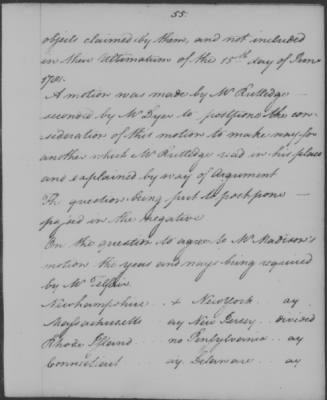 55.
objects claimed by them, and not included
in their Ultimatum of the 15th day of June
1781.
A motion was made by Mr Rutledge
seconded by Mr Dyer to postpone the con-
sideration of this motion to make way for
another which Mr Rutledge read in his place
and explained by way of Argument
The question being put to postpone —
passed in the Negative
On the question to agree to Mr Madison's
motion the yeas and nays being required
by Mr Telfair
Newhampshire + New York ay
Massachusetts ay New Jersey divided
Rhode Island no Pensylvania ay
Connecticut ay Delaware ay